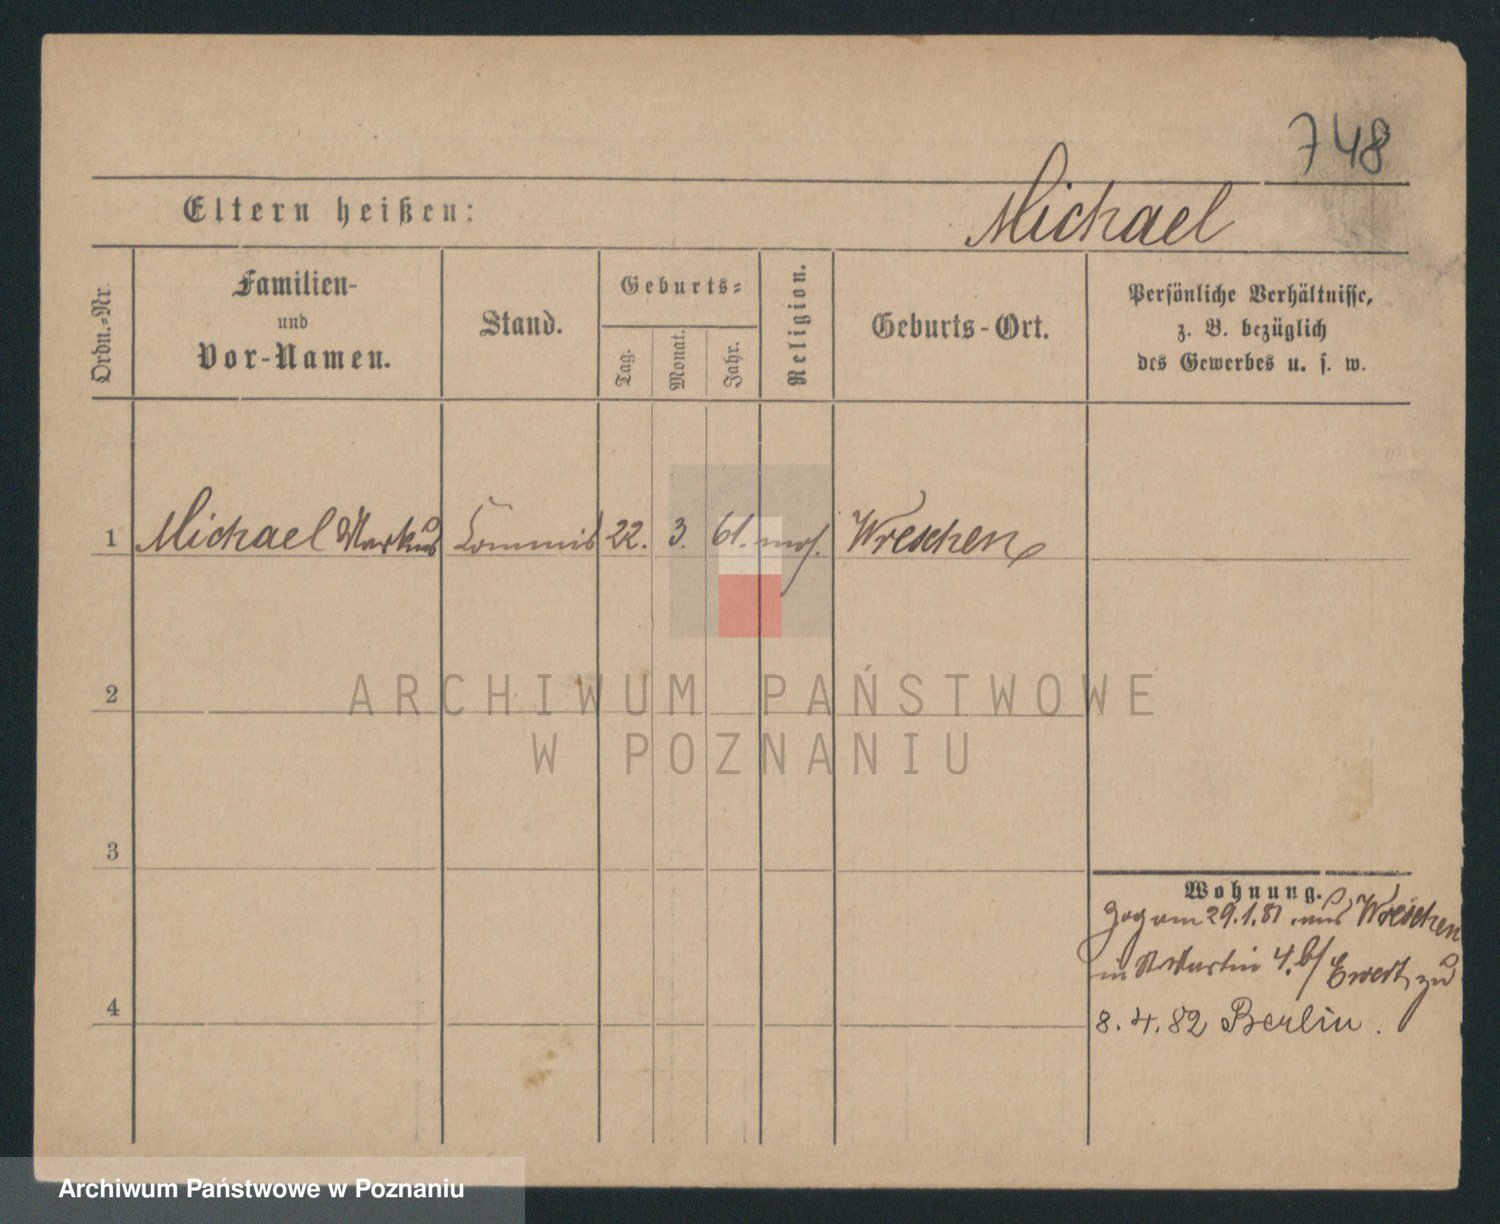 748
Eltern heißen:
Michael
Ordn.-Nr.
Familien-
und
Vor-Namen.
Stand.
Geburts-
Tag.
Monat.
Jahr.
Religion.
Geburts-Ort.
Persönliche Verhältnisse,
z. B. bezüglich
des Gewerbes u. s. w.
1 Michael Markus Commis 22. 3. 61. mos. Wreschen
2
ARCHIWUM PAŃSTWOWE
W POZNANIU
3
Wohnung.
Zog am 29.1.81 aus Wreschen
in St Martin 4. b/ Ewert, zu
4
8. 4. 82 Berlin.
Archiwum Państwowe w Poznaniu